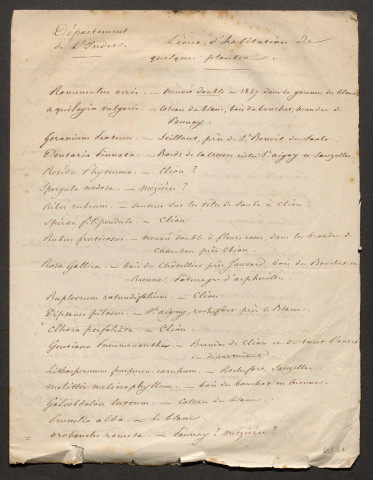 Département
de L'Indre.
Lieux d'habitation de
quelques plantes.
Ranunculus acris. — trouvée double en 1847 dans le
aquilegia vulgaris. — Coteau du blanc, bois du bouchet, brandes de
Geranium — près de St Benoit du Sault
Dentaria Pinnata. — Bords de la creuse entre St aigny et Sauzelles
Reseda Phyteuma. — Clion ?
Spergula nodosa. — mezières ?
Ribes rubrum. — sur les têtes de saule à Clion
Spiraea filipendula. — Clion
Rubus fruticosus. — trouvé double à fleurs roses dans les brandes de
Chambon près Clion
Rosa Gallica. — bois du Châtellier près Jauvard, bois du Bouchet en
Brenne,
Buplevrum rotundifolium. — Clion
Dipsacus pilosus. — St aigny, rochefort près le Blanc.
Chlora perfoliata. — Clion
Gentiana Pneumonanthe. — Brandes de Clion et de tout l'ouest
du département
Lithospermum purpureo caeruleum. — Rochefort, Sauzelles
melittis melissophyllum. — bois du bouchet en brenne
Galeobdolon luteum. — Coteau du blanc
Prunella alba. — le blanc
orobanche ramosa. — ? mezières ?